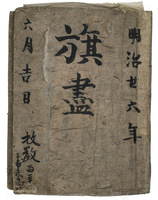 明治廿六年
旗盡
六月吉日
枚数